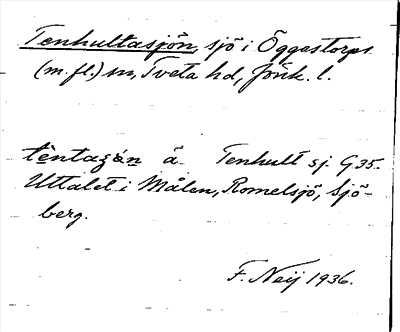 Tenhultasjön, sjö i Öggestorps
(m. fl.) sn, Tveta hd, Jönk. l.
tèntazǻn å Tenhult sj. G 35.
Uttalet i Målen, Romelsjö, Sjö-
berg.
F. Neij 1936.